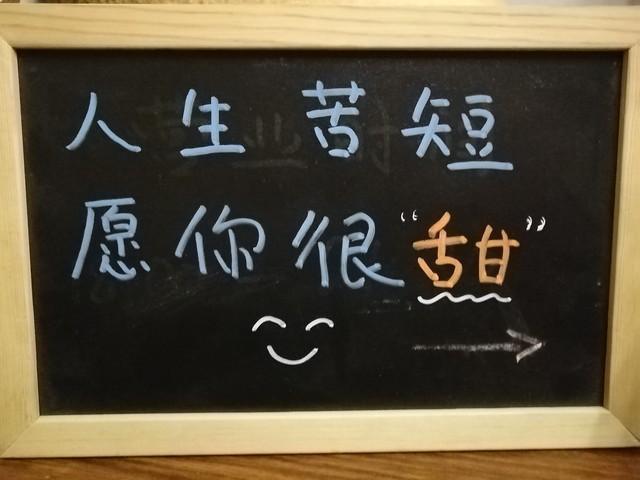 人生苦短
愿你很“甜”